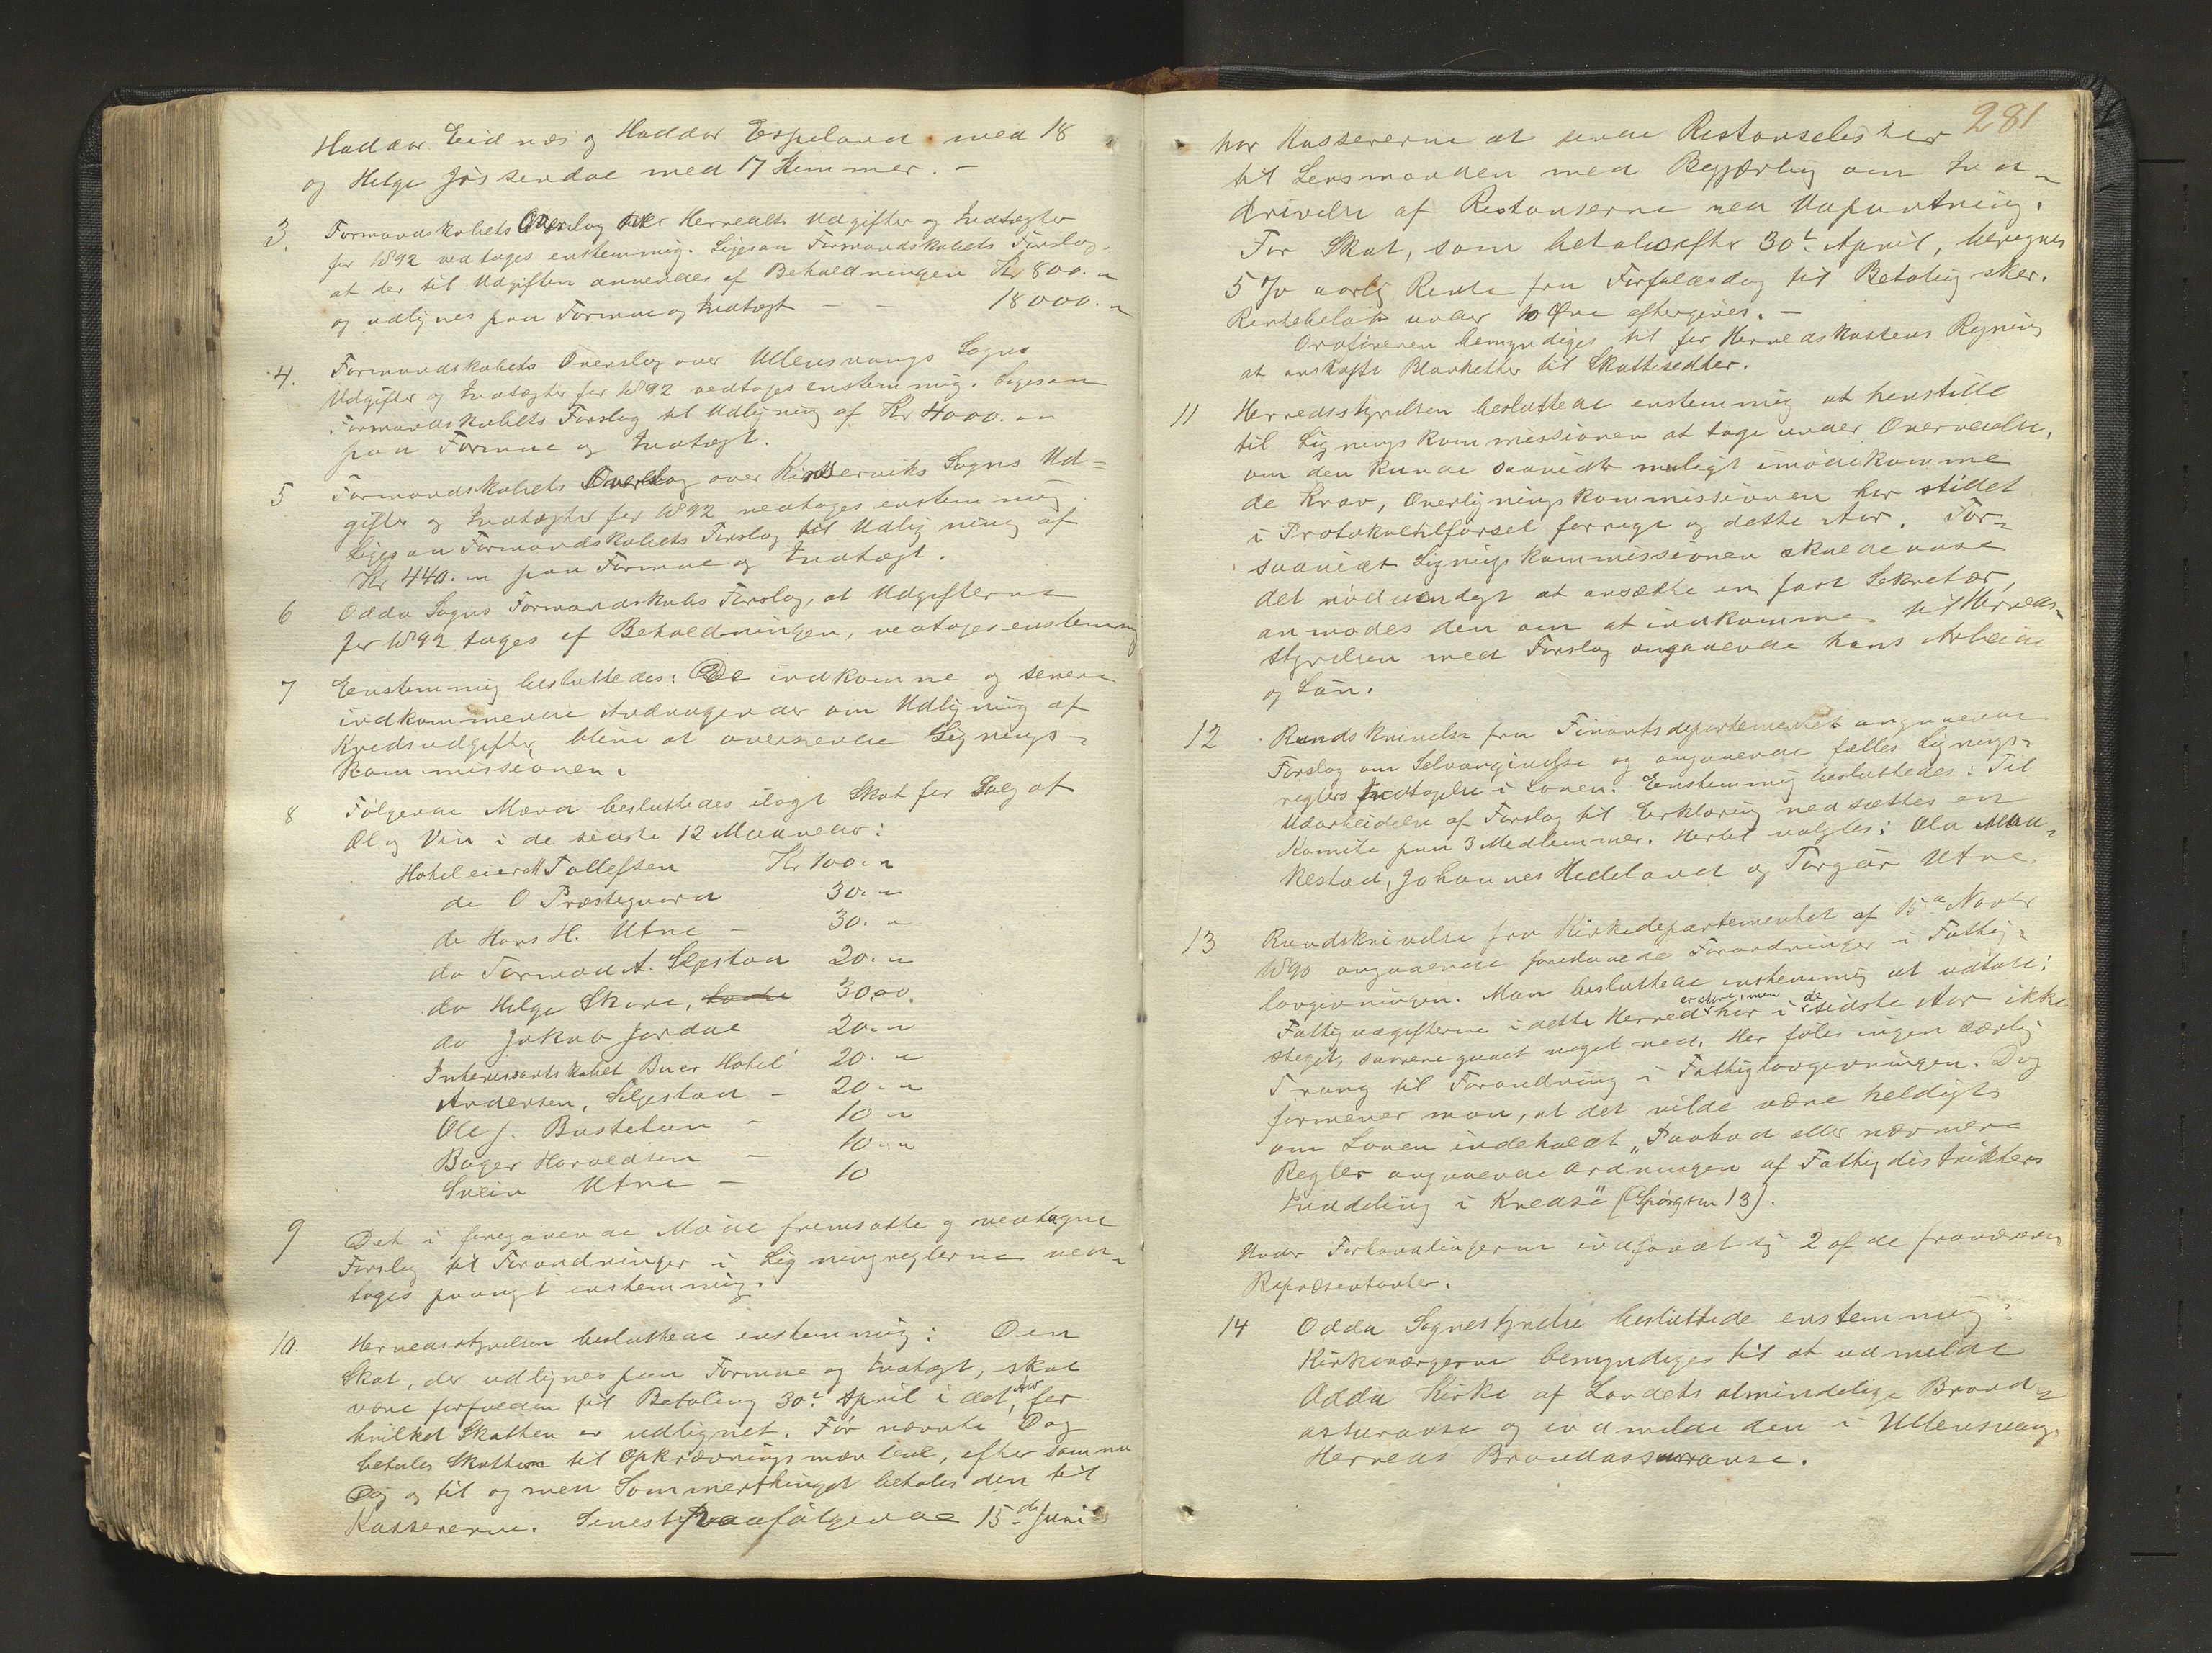 Haldor Eidnæs og Haldor Espeland med 18
og Helge Jøsendal med 17 Stemmer. -
3. Formandskabets Overslag over Herredets Udgifter og Indtægter
for 1892 vedtages enstemmig. Ligesaa Formandskabets Forslag
at der til Udgiften anvendes af Beholdningen Kr 800. "
og udlignes paa Formue og Indtægt - - 18000. "
4. Formandskabets Overslag over Ullensvangs Sogns
Udgifter og Indtægter for 1892 vedtages enstemmig. Ligesaa
Formandskabets Forslag til Udligning af Kr 4000. "
paa Formue og Indtægt.
5 Formandskabets Overslag over Kinserviks Sogns Ud=
gifter og Indtægter for 1892 vedtages enstemmig
Ligesaa Formandskabets Forslag til Udligning af
Kr 440. " paa Formue og Indtægt.
6 Odda Sogns Formandskabs Forslag, at Udgifterne
for 1892 tages af Beholdningen, vedtages enstemmig
7 Enstemmig besluttedes: De indkomne og senere
indkommende Andragender om Udligning af
Kredsudgifter, blive at oversende Lignings-
kommissionen.
8 Følgende Mænd besluttedes ilagt Skat for Salg af
Øl og Vin i de sidste 12 Maaneder:
Hoteleier M Tollefsen Kr 100. "
do O Præstegaard 30. "
do Hans H. Utne - 30. "
do Tormod A. Seljestad 20. "
do Helge Skare, 30.00.
do Jakob Jordal 20. "
Interessentskabet Buer Hotel 20. "
Andersen, Seljestad - 20. "
Ole J. Bustetun - 10 "
Bager Haraldsen - 10. "
Svein Utne - 10
9 Det i foregaaende Møde fremsatte og vedtagne
Forslag til Forandringer i Ligningsreglerne ved-
tages paanyt enstemmig.
10. Herredsstyrelsen besluttede enstemmig: Den
Skat, der udlignes paa Formue og Indtægt, skal
være forfalden til Betaling 30te April i det Aar, for
hvilket Skatten er udlignet. Før nævnte Dag
betales Skatten til Opkrævningsmændene, efter samme
Dag og til og med Sommerthinget betales den til
Kassererne. Senest paafølgende 15de Juni
281
har Kassererne at sende Restanselister
til Lensmanden med Begjæring om Ind-
drivelse af Restanserne ved Udpantning.
For Skat, som betales efter 30te April, beregnes
5 % aarlig Rente fra Forfaldsdag til Betaling sker.
Rentebeløb under 10 Øre eftergives. -
Ordføreren bemyndiges til for Herredskassens Regning
at anskaffe Blanketter til Skattesedler.
11 Herredsstyrelsen besluttede enstemmig at henstille
til Ligningskommissionen at tage under Overveielse,
om den kunde saavidt muligt imødekomme
de Krav, Overligningskommissionen har stillet
i Protokoltilførsel forrige og dette Aar. For-
saavidt Ligningskommissionen skulde anse
det nødvendigt at ansætte en fast Sekretær,
anmodes den om at indkomme til Herreds-
styrelsen med Forslag angaaende hans Arbeide
og Løn.
12 Rundskrivelse fra Finantsdepartementet angaaende
Forslag om Selvangivelse og angaaende fælles Lignings-
reglers Indtagelse i Loven. Enstemmig besluttedes: Til
Udarbeidelse af Forslag til Erklæring nedsættes en
Komite paa 3 Medlemmer. Hertil valgtes: Ola Maa-
kestad, Johannes Hedeland og Torgeir Utne.
13 Rundskrivelse fra Kirkedepartementet af 15de Novbr
1890 angaaende foreslaaede Forandringer i Fattig-
lovgivningen. Man besluttede enstemmig at udtale:
Fattigudgifterne i dette Herred er store, men har i de sidste Aar ikke
steget, snarere gaaet noget ned. Her føles ingen særlig
Trang til Forandring i Fattiglovgivningen. Dog
formener man, at det vilde være heldigt,
om Loven indeholdt "Paabud eller nærmere
Regler angaaende Ordningen af Fattigdistrikters
Inddeling i Kredse" (Spørgsm 13).
Under Forhandlingerne indfandt sig 2 af de fraværende
Repræsentanter.
14 Odda Sognestyrelse besluttede enstemmig:
Kirkeværgerne bemyndiges til at udmelde
Odda Kirke af Landets almindelige Brand-
assuranse og indmelde den i Ullensvang
Herreds Brandassuranse.